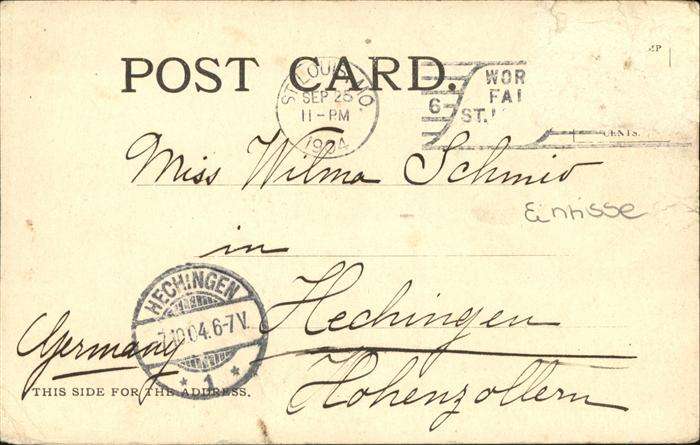 MP
POST CARD.
ST. LOUIS, MO.
SEP 25
11-PM
1904
6
WOR
FAI
ST.
CENTS.
Miss Wilma Schmid
Einrisse
in
HECHINGEN
7.10.04.6-7V.
* 1 *
Hechingen
Germany
Hohenzollern
THIS SIDE FOR THE ADDRESS.